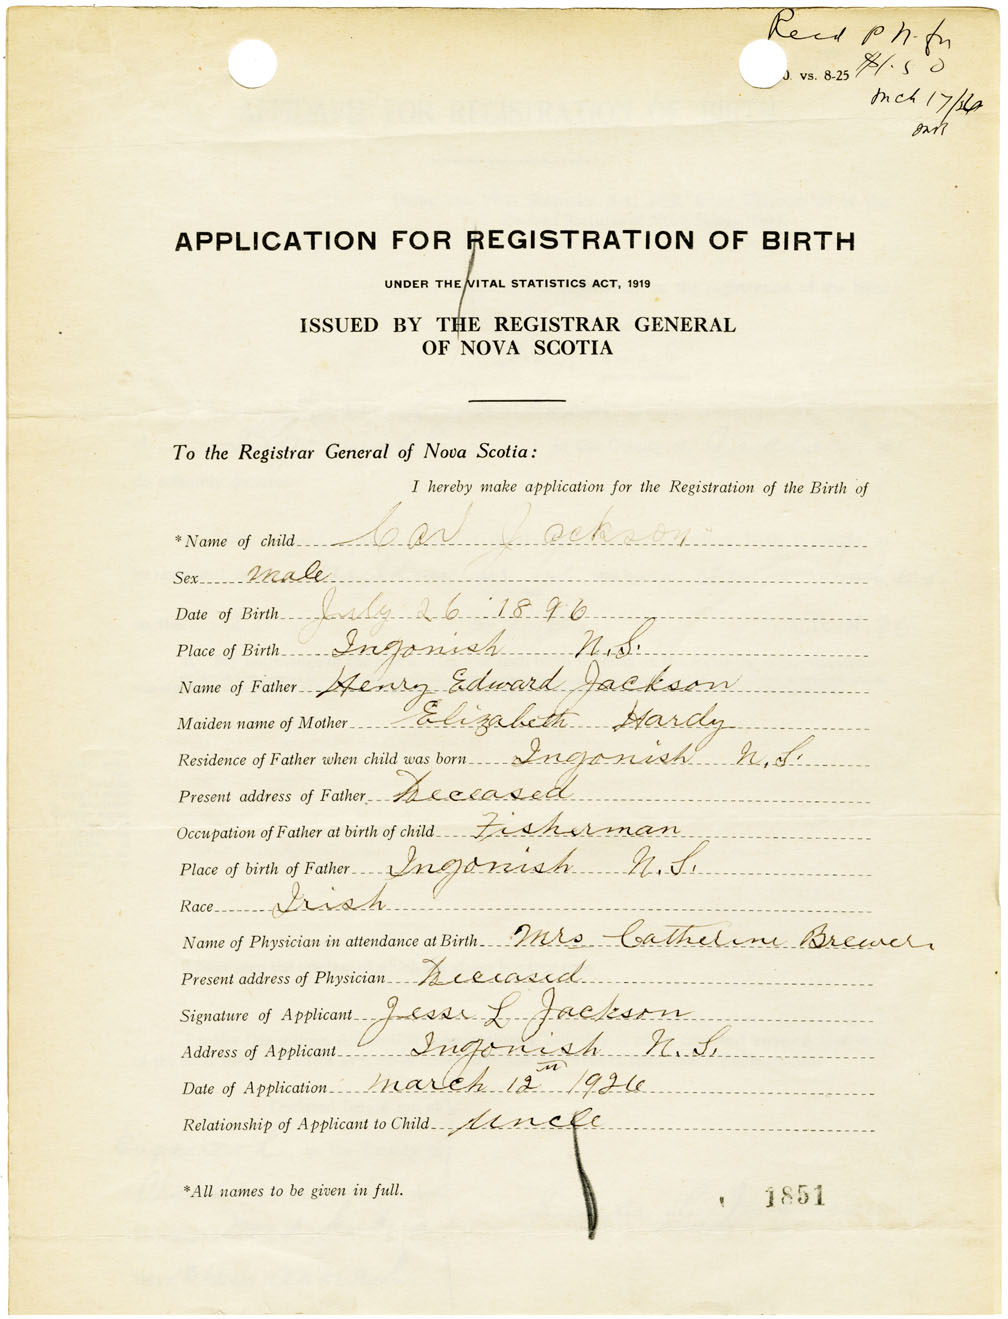 Recd P.N. for
O. vs. 8-25 $1.50
Mch 17/26
APPLICATION FOR REGISTRATION OF BIRTH
UNDER THE VITAL STATISTICS ACT, 1919
ISSUED BY THE REGISTRAR GENERAL
OF NOVA SCOTIA
To the Registrar General of Nova Scotia:
I hereby make application for the Registration of the Birth of
*Name of child Carl Jackson
Sex Male
Date of Birth July 26 1896
Place of Birth Ingonish N.S.
Name of Father Henry Edward Jackson
Maiden name of Mother Elizabeth Hardy
Residence of Father when child was born Ingonish N.S.
Present address of Father Deceased
Occupation of Father at birth of child Fisherman
Place of birth of Father Ingonish N.S.
Race Irish
Name of Physician in attendance at Birth Mrs Catherine Brewer
Present address of Physician Deceased
Signature of Applicant Jesse L Jackson
Address of Applicant Ingonish N.S.
Date of Application March 12th 1926
Relationship of Applicant to Child Uncle
*All names to be given in full.
1851